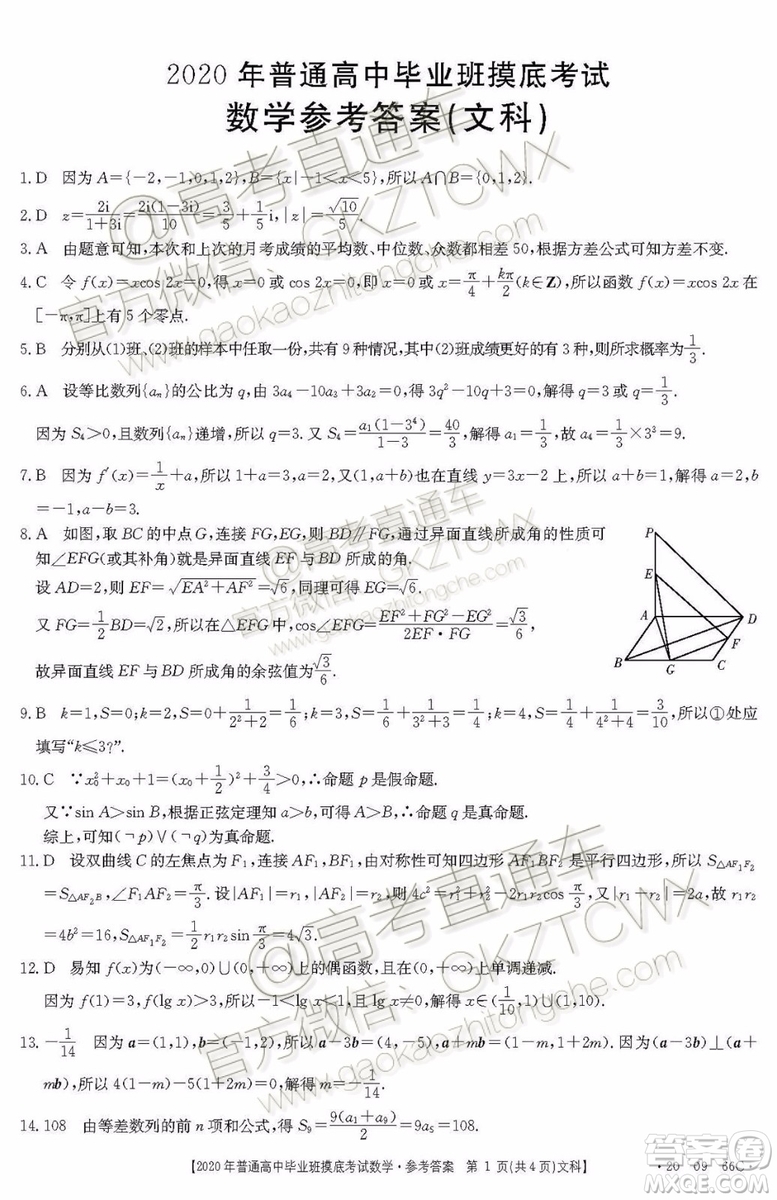 2020 年普通高中毕业班摸底考试
数学参考答案(文科)
1. D 因为 A={-2,-1,0,1,2},B={x|-1<x<5},所以 A∩B={0,1,2}.
2. D z=2i/(1+3i)=2i(1-3i)/10=3/5+1/5 i,|z|=√10/5.
3. A 由题意可知,本次和上次的月考成绩的平均数、中位数、众数都相差 50,根据方差公式可知方差不变.
4. C 令 f(x)=xcos 2x=0,得 x=0 或 cos 2x=0,即 x=0 或 x=π/4+kπ/2(k∈Z),所以函数 f(x)=xcos 2x 在
[-π,π]上有 5 个零点.
5. B 分别从(1)班、(2)班的样本中任取一份,共有 9 种情况,其中(2)班成绩更好的有 3 种,则所求概率为1/3.
6. A 设等比数列{aₙ}的公比为 q,由 3a₄-10a₃+3a₂=0,得 3q²-10q+3=0,解得 q=3 或 q=1/3.
因为 S₄>0,且数列{aₙ}递增,所以 q=3. 又 S₄=a₁(1-3⁴)/(1-3)=40/3,解得 a₁=1/3,故 a₄=1/3×3³=9.
7. B 因为 f′(x)=1/x+a,所以 1+a=3,a=2,又(1,a+b)也在直线 y=3x-2 上,所以 a+b=1,解得 a=2,b
=-1,a-b=3.
8. A 如图,取 BC 的中点 G,连接 FG,EG,则 BD∥FG,通过异面直线所成角的性质可
知∠EFG(或其补角)就是异面直线 EF 与 BD 所成的角.
设 AD=2,则 EF=√(EA²+AF²)=√6,同理可得 EG=√6.
又 FG=1/2 BD=√2,所以在△EFG 中,cos∠EFG=(EF²+FG²-EG²)/(2EF·FG)=√3/6,
故异面直线 EF 与 BD 所成角的余弦值为√3/6.
P
E
A
D
F
B
G
C
9. B k=1,S=0;k=2,S=0+1/(2²+2)=1/6;k=3,S=1/6+1/(3²+3)=1/4;k=4,S=1/4+1/(4²+4)=3/10,所以①处应
填写“k≤3?”.
10. C ∵x₀²+x₀+1=(x₀+1/2)²+3/4>0,∴命题 p 是假命题.
又∵sin A>sin B,根据正弦定理知 a>b,可得 A>B,∴命题 q 是真命题.
综上,可知(¬p)∨(¬q)为真命题.
11. D 设双曲线 C 的左焦点为 F₁,连接 AF₁,BF₁,由对称性可知四边形 AF₁BF₂ 是平行四边形,所以 S△AF₁F₂
=S△AF₂B,∠F₁AF₂=π/3. 设|AF₁|=r₁,|AF₂|=r₂,则 4c²=r₁²+r₂²-2r₁r₂cos π/3. 又|r₁-r₂|=2a,故 r₁r₂
=4b²=16,S△AF₁F₂=1/2 r₁r₂sin π/3=4√3.
12. D 易知 f(x)为(-∞,0)∪(0,+∞)上的偶函数,且在(0,+∞)上单调递减.
因为 f(1)=0,f(lg x)>f(1),所以-1<lg x<1,且 lg x≠0,解得 x∈(1/10,1)∪(1,10).
13. -1/14 因为 a=(1,1),b=(-1,2),所以 a-3b=(4,-5),a+mb=(1-m,1+2m). 因为(a-3b)⊥(a+
mb),所以 4(1-m)-5(1+2m)=0,解得 m=-1/14.
14. 108 由等差数列的前 n 项和公式,得 S₉=9(a₁+a₉)/2=9a₅=108.
【2020 年普通高中毕业班摸底考试数学·参考答案 第 1 页(共 4 页)文科】
·20-09-66C·
@高考直通车
官方微信:GKZTCWX
www.gaokaozhitongche.com
@高考直通车
官方微信:GKZTCWX
www.gaokaozhitongche.com
@高考直通车
官方微信:GKZTCWX
www.gaokaozhitongche.com